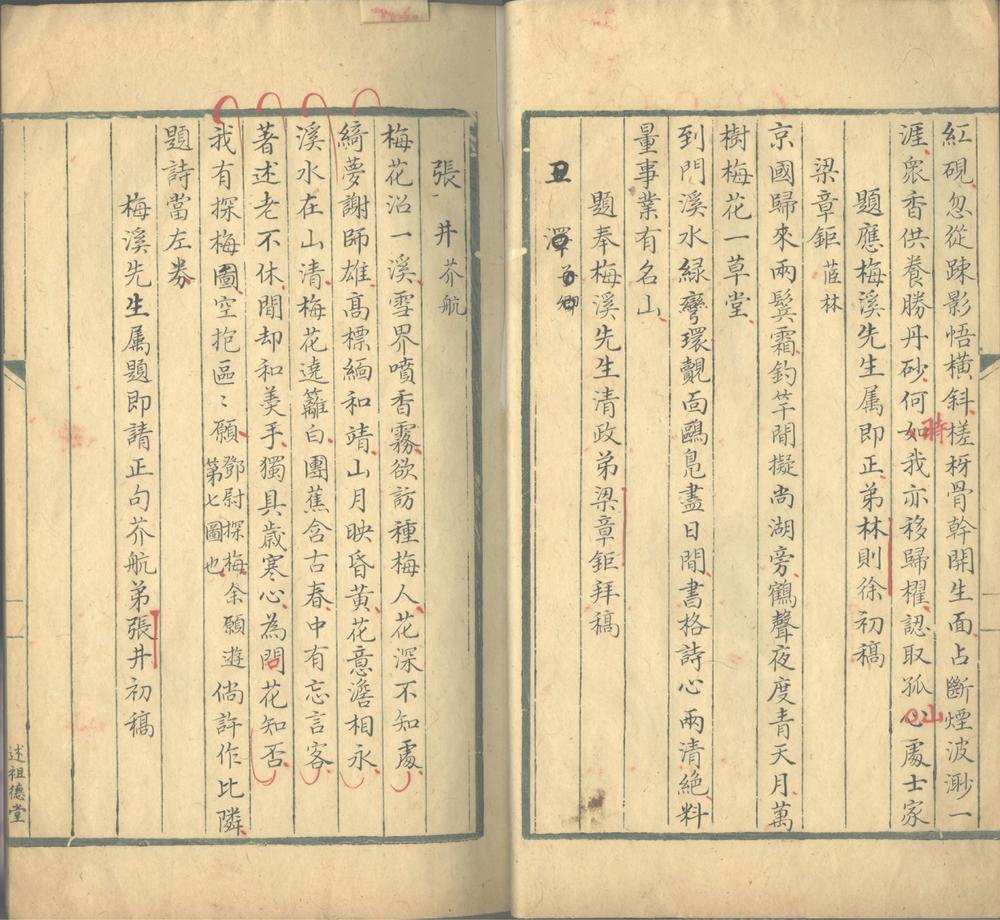 紅硯忽從疎影悟橫斜槎枒骨幹開生面占斷煙波渺一
涯衆香供養勝丹砂何如我亦移歸櫂認取孤心處士家
時
山
題應梅溪先生属即正弟林則徐初稿
梁章鉅 茝林
京國歸來兩鬂霜釣竿閒擬尚湖旁鶴聲夜度青天月萬
樹梅花一草堂
到門溪水緑彎環覿面鷗鳬盡日閒書格詩心兩清絶料
量事業有名山
題奉梅溪先生清政弟梁章鉅拜稿
張井 芥航
梅花沿一溪雪界噴香霧欲訪種梅人花深不知處
綺夢謝師雄高標緬和靖山月映昏黃花意澹相永
溪水在山清梅花遶籬白團蕉含古春中有忘言客
著述老不休閒却和羹手獨具歲寒心為問花知否
我有探梅圖空抱區〻願 鄧尉探梅余願遊第七圖也 倘許作比隣
題詩當左券
梅溪先生属題即請正句芥航弟張井初稿
述祖德堂